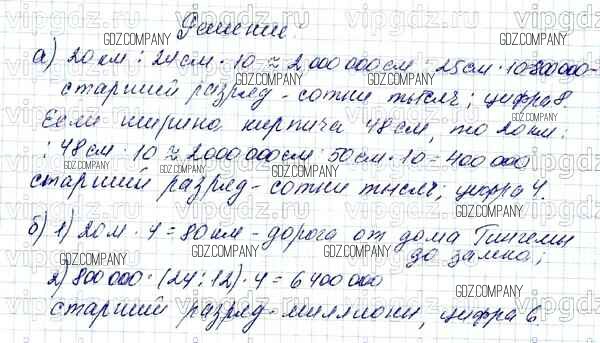 Решение:
а) 20 км : 24 см · 10 ≈ 2 000 000 см : 25 см · 10 = 800 000 -
старший разряд - сотни тысяч; цифра 8.
Если ширина кирпича 48 см, то 20 км :
: 48 см · 10 ≈ 2000 000 см : 50 см · 10 = 400 000
старший разряд - сотни тысяч; цифра 4.
б) 1) 20 м · 4 = 80 км - дорога от дома Гингемы
до замка;
2) 800 000 · (24 : 12) · 4 = 6 400 000
старший разряд - миллионы, цифра 6.
vipgdz.ru
GDZ.COMPANY